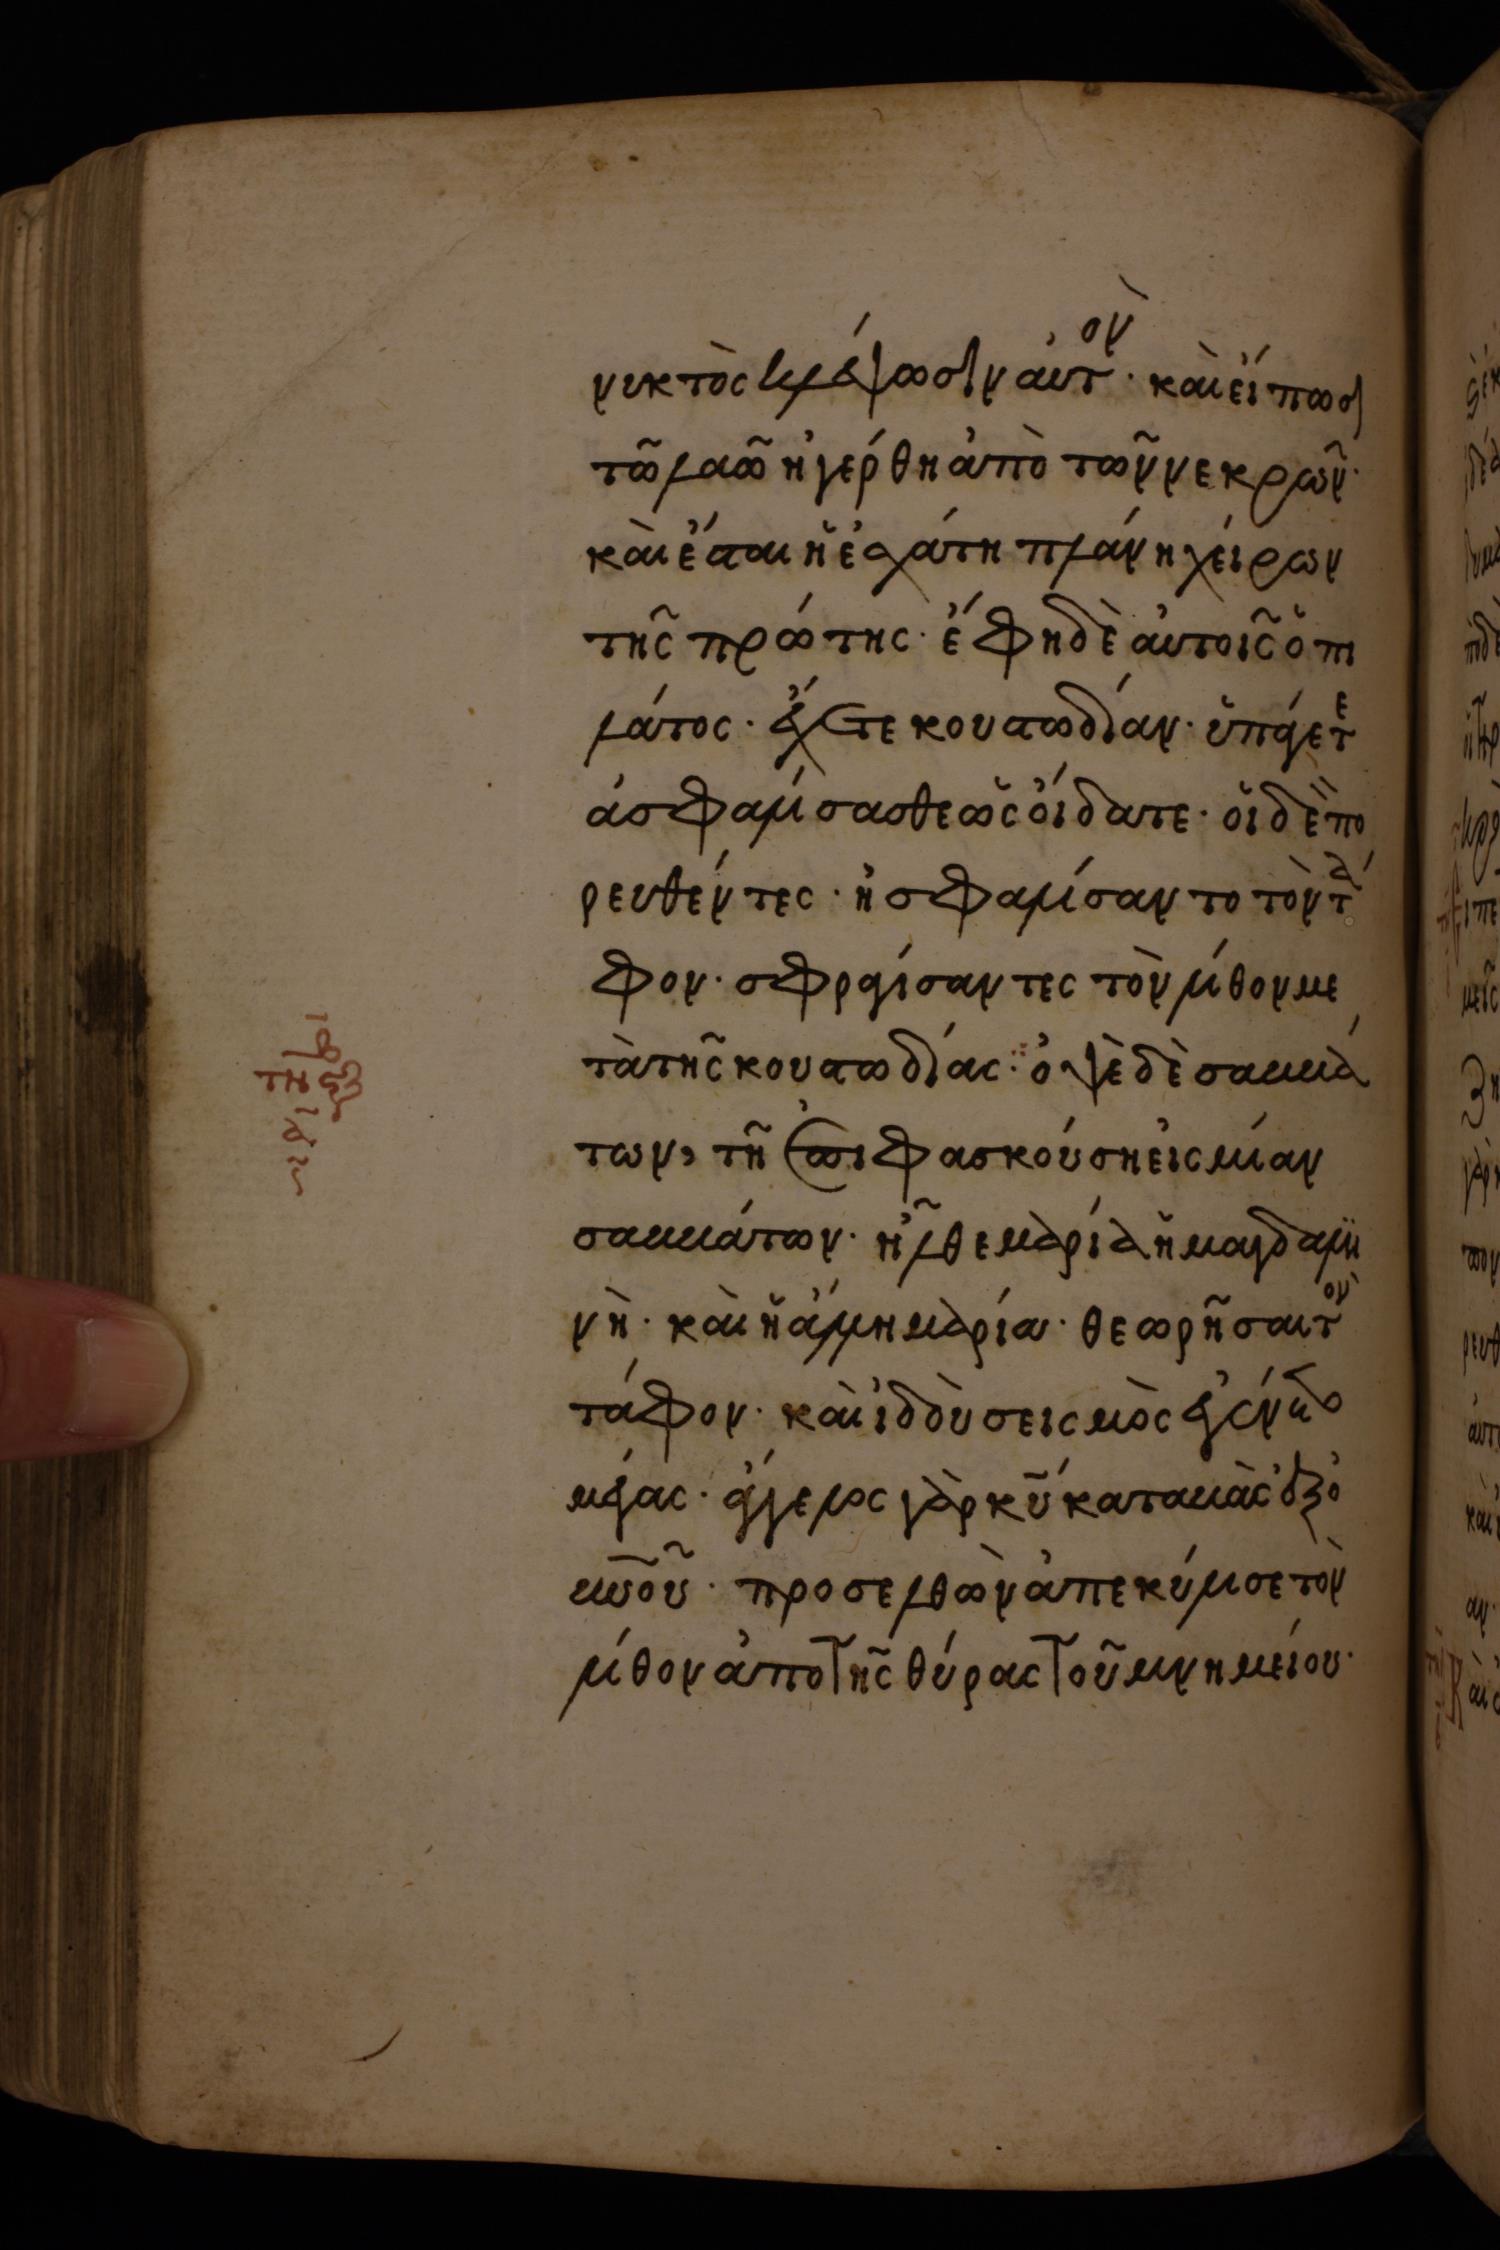 νυκτὸς κλέψωσιν αὐτὸν · καὶ εἴπωσι
τῶ λαῶ ἠγέρθη ἀπὸ τῶν νεκρῶν ·
καὶ ἔσται ἡ ἐσχάτη πλάνη χείρων
τῆς πρώτης · ἔφη δὲ αὐτοῖς ὁ πι
λάτος · ἔχετε κουστωδίαν · ὑπάγετε
ἀσφαλίσασθε ὡς οἴδατε · οἱ δὲ πο
ρευθέντες · ἠσφαλίσαντο τὸν τά
φον · σφραγίσαντες τὸν λίθον με
τὰ τῆς κουστωδίας · ὀψὲ δὲ σαββά
των, τῆ ἐπιφασκούση εἰς μίαν
σαββάτων · ἦλθε μαρία ἡ μαγδαλη
νὴ · καὶ ἡ ἄλλη μαρία · θεωρῆσαι τὸν
τάφον · καὶ ἰδοὺ σεισμὸς ἐγένετο
μέγας · ἄγγελος γὰρ κυ καταβὰς ἐξ ὀ
υνοῦ · προσελθὼν ἀπεκύλισε τὸν
λίθον ἀπὸ τῆς θύρας τοῦ μνημείου ·